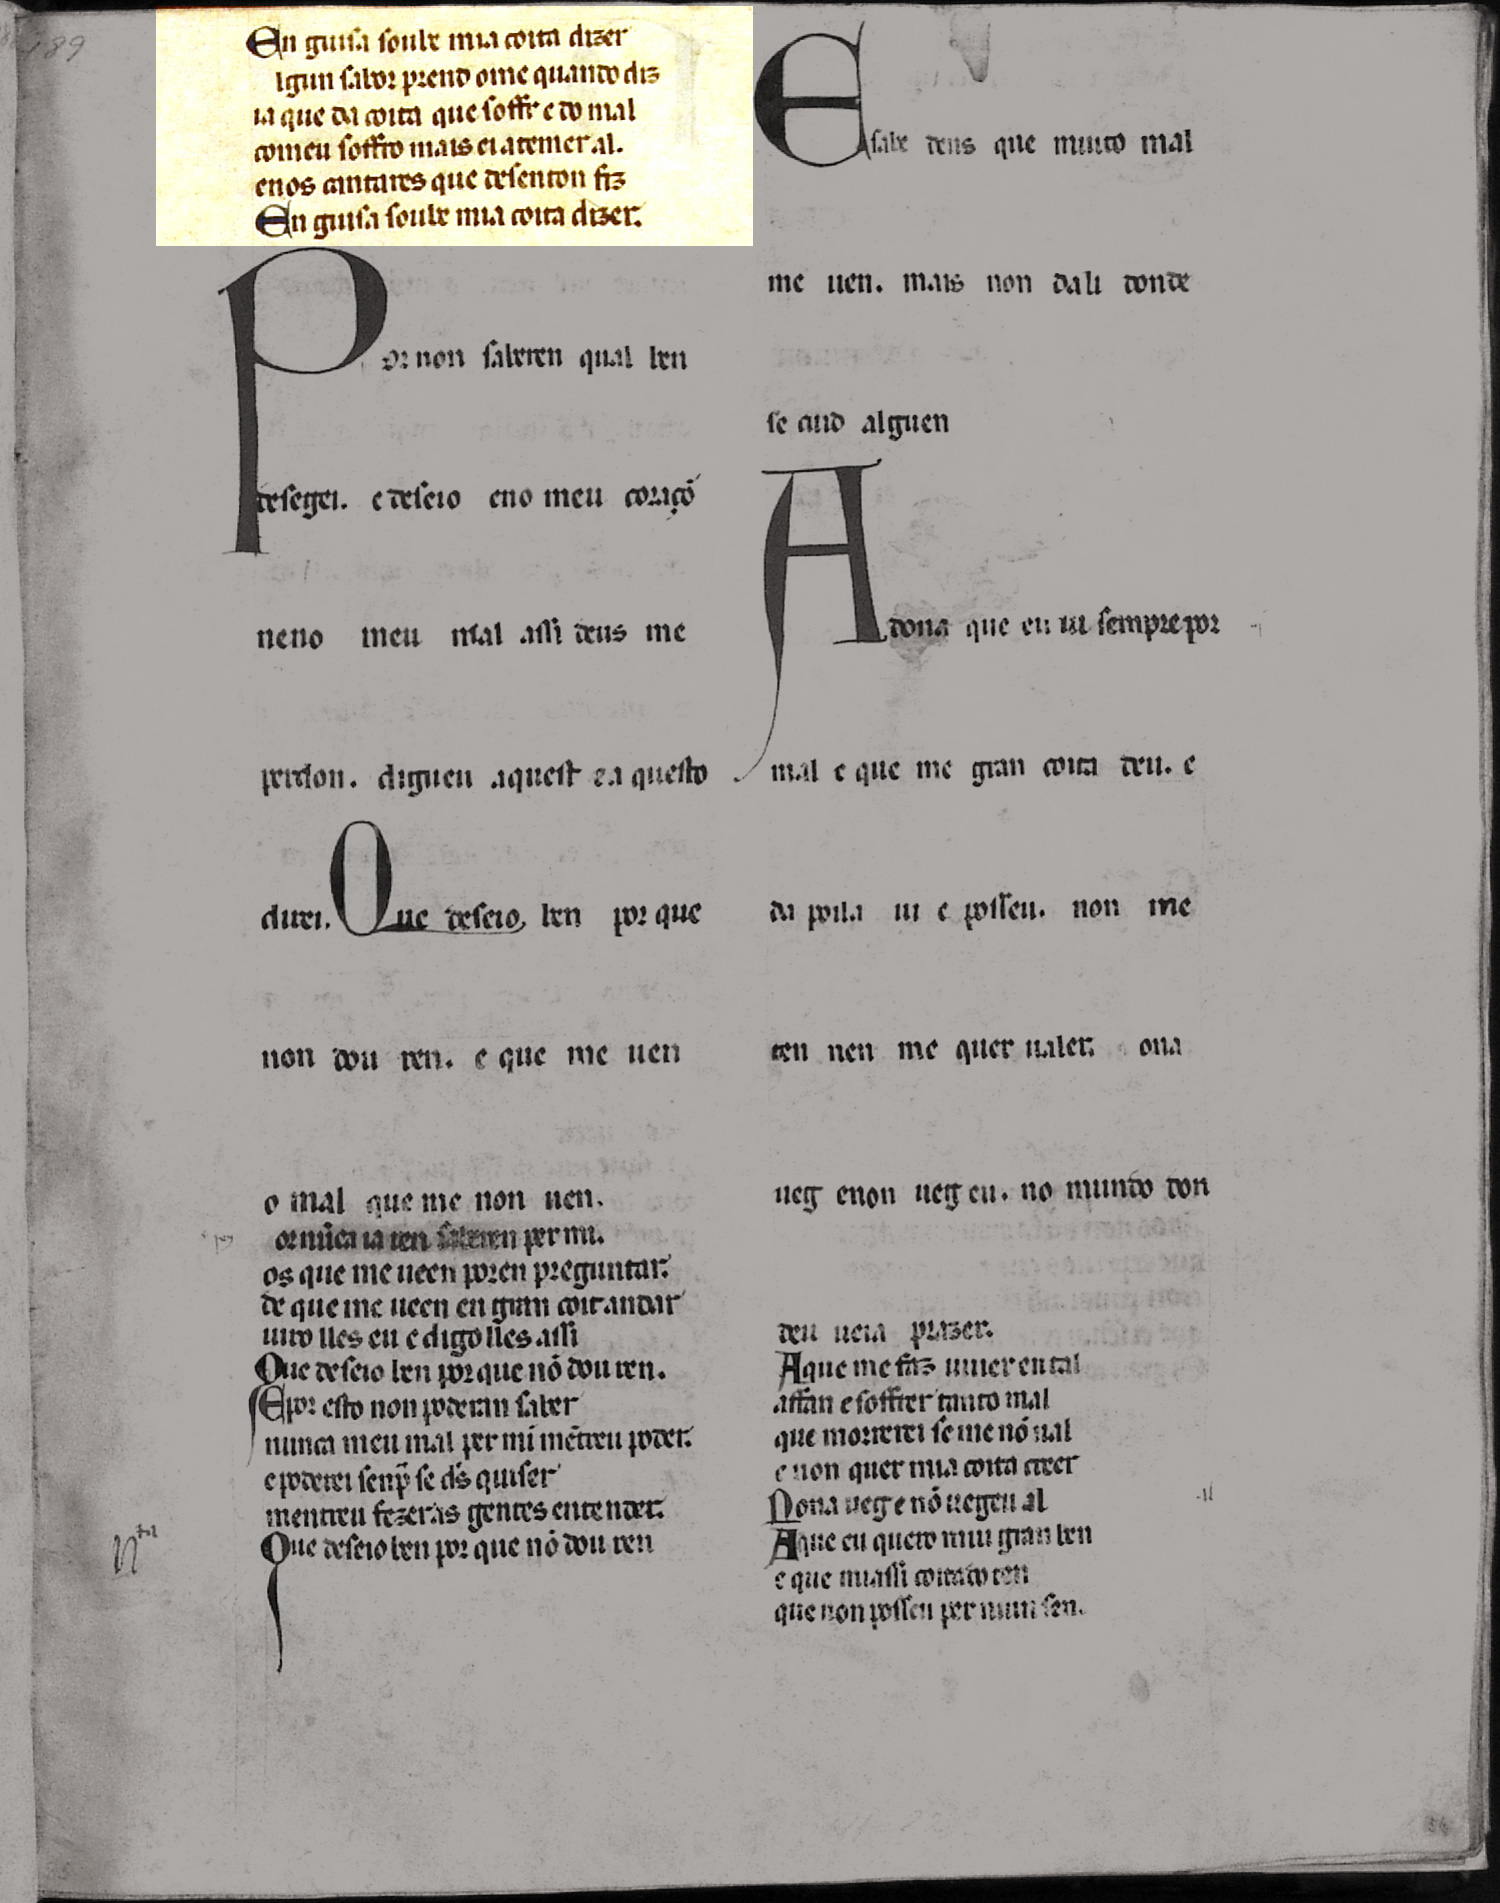 En guisa soube mia coita dizer
lgun sabor prend ome quando diz
ia que da coita que soffre do mal
comeu soffro mais ei atemer al.
enos cantares que desenton fiz
En guisa soube mia coita dizer.
Por non saberen qual ben
desegei. e deseio eno meu coraçõ
neno meu mal assi deus me
perdon. digueu aquest e a questo
direi. Que deseio ben por que
non dou ren. e que me uen
o mal que me non uen.
or nũca ia ren saberen per mi.
os que me ueen poren preguntar.
de que me ueen en gran coit andar
uiro lles eu e digo lles assi
Que deseio ben por que nõ dou ren.
E por esto non poderan saber
nunca meu mal per mi mẽtreu poder.
e poderei senp̃ se d̃s quiser
mentreu fezer as gentes entender.
Que deseio ben por que nõ dou ren
E sabe deus que muito mal
me uen. mais non dali donde
se cuid alguen
A dona que eu ui sempre por
mal e que me gran coita deu. e
da poila ui e posseu. non me
ten nen me quer ualer. ona
ueg enon ueg eu. no mundo don
deu ueia prazer.
Aque me faz uiuer en tal
affan e soffrer tanto mal
que morrerei se me nõ ual
e non quer mia coita creer
Nona ueg e nõ uegeu al
Aque eu quero mui gran ben
e que massi coitado ten
que non posseu per nium sen.